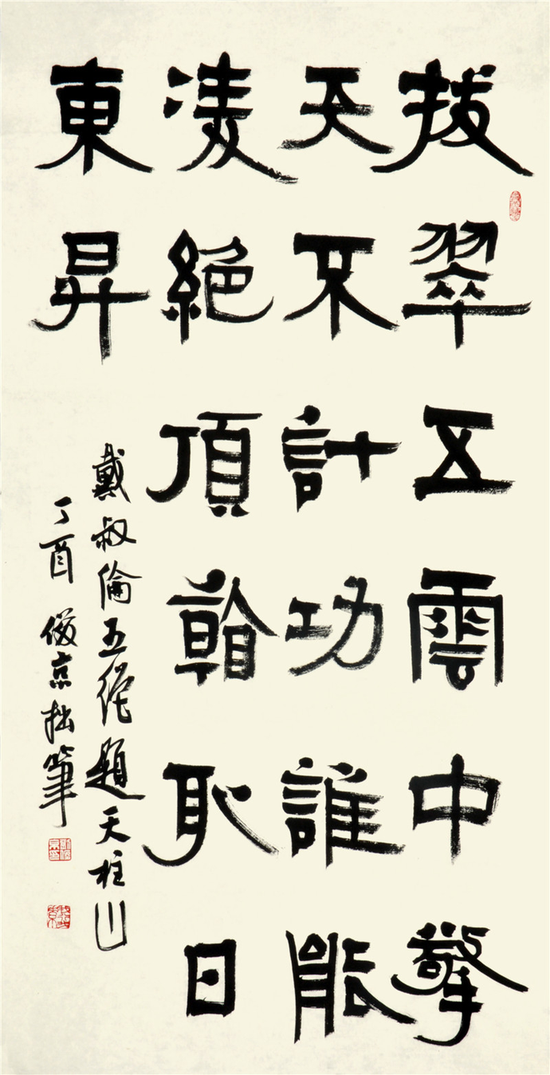 拔翠五雲中擎
天不計功誰能
凌絕頂看取日
東昇
戴叔倫五絕題天柱山
丁酉 俊京拙筆